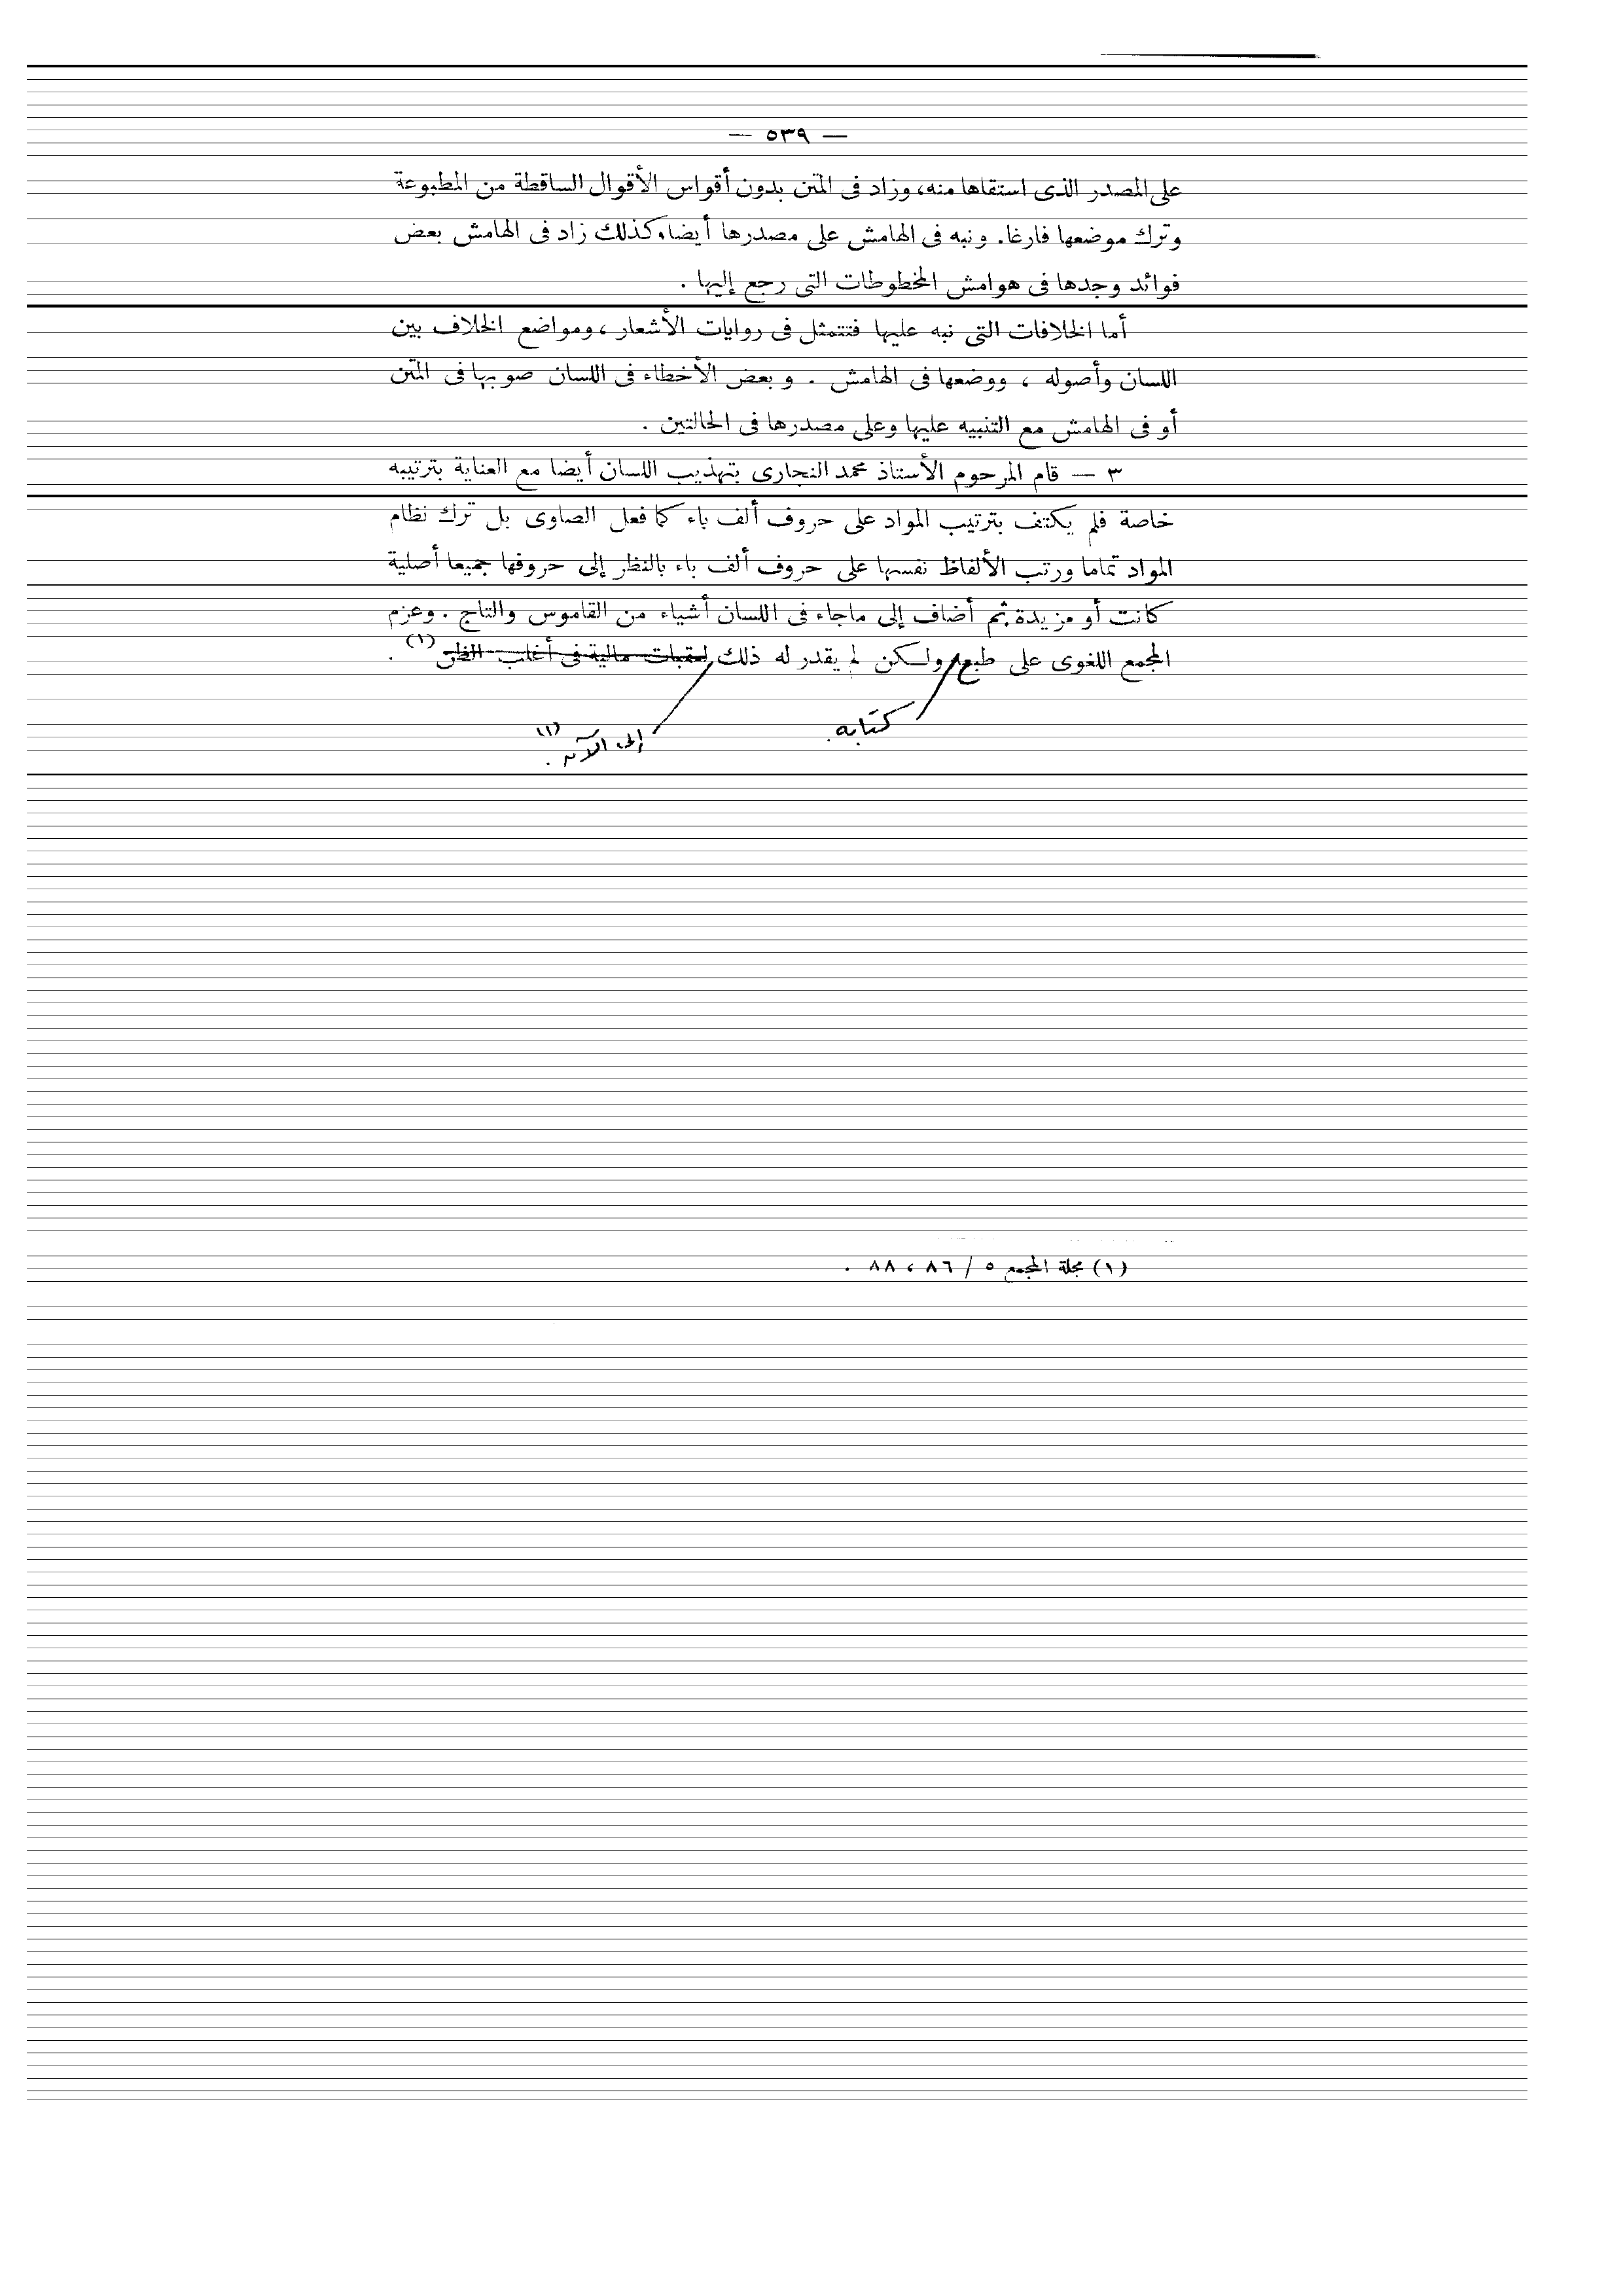 — ٥٣٩ —
على المصدر الذى استقاها منه، وزاد فى المتن بدون أقواس الأقوال الساقطة من المطبوعة
وترك موضعها فارغا. ونبه فى الهامش على مصدرها أيضا، كذلك زاد فى الهامش بعض
فوائد وجدها فى هوامش المخطوطات التى رجع إليها .
أما الخلافات التى نبه عليها فتتمثل فى روايات الأشعار ، ومواضع الخلاف بين
اللسان وأصوله ، ووضعها فى الهامش . وبعض الأخطاء فى اللسان صوبها فى المتن
أو فى الهامش مع التنبيه عليها وعلى مصدرها فى الحالتين .
٣ — قام المرحوم الأستاذ محمد النجارى بتهذيب اللسان أيضا مع العناية بترتيبه
خاصة فلم يكتف بترتيب المواد على حروف ألف باء كما فعل الصاوى بل ترك نظام
المواد تماما ورتب الألفاظ نفسها على حروف ألف باء بالنظر إلى حروفها جميعا أصلية
كانت أو مزيدة ثم أضاف إلى ماجاء فى اللسان أشياء من القاموس والتاج . وعزم
المجمع اللغوى على طبعه ولكن لم يقدر له ذلك لعقبات مالية فى أغلب الظن (١) .
كتابه.
إلى الآن (١) .
(١) مجلة المجمع ٥ / ٨٦ ، ٨٨ .